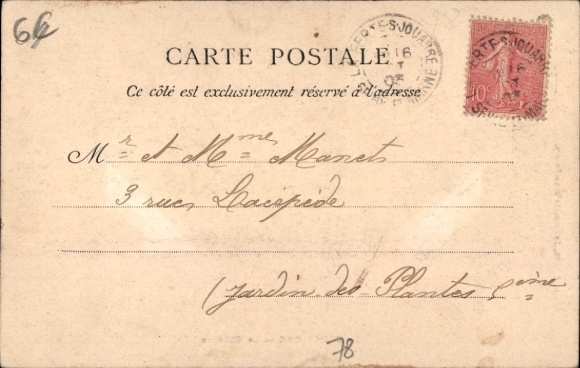 64
CARTE POSTALE
Ce côté est exclusivement réservé à l'adresse
LA FERTE-S-JOUARRE
16
SEINE ET MARNE
10c
FERTE-S-JOUARR
Mr et Mmes Manets
3 rue Lacépède
(Jardin des Plantes
78